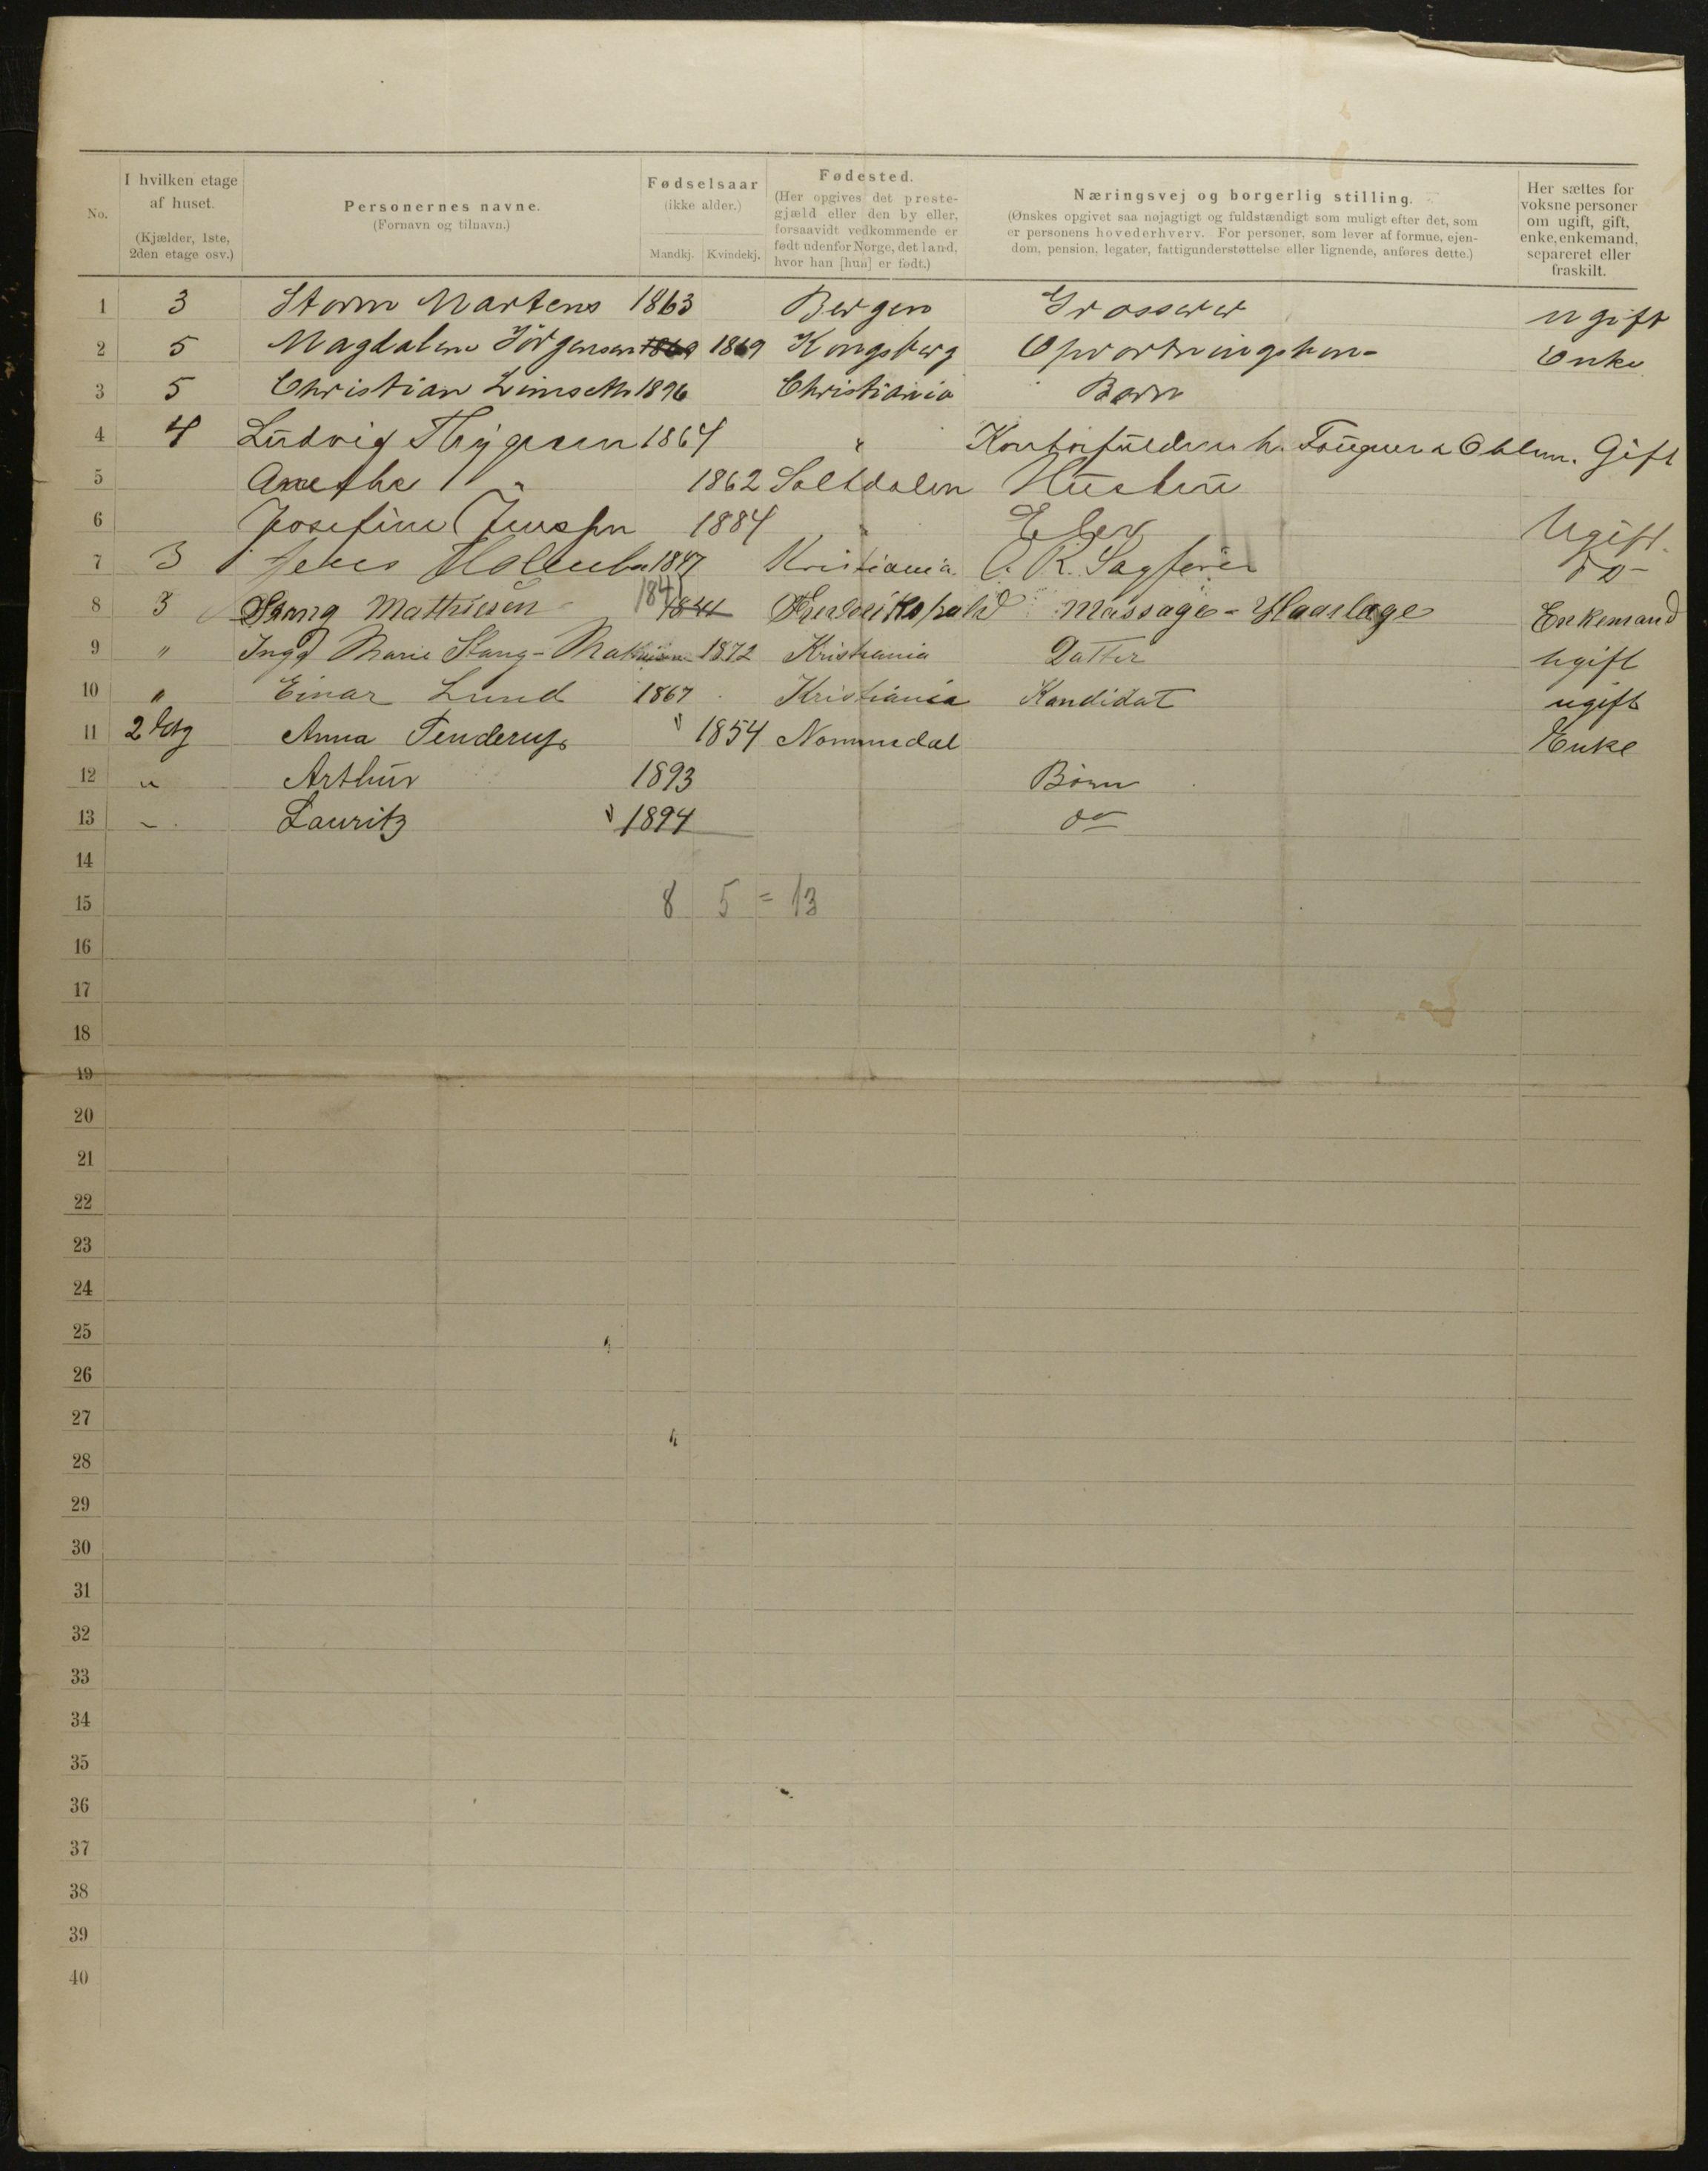 No. I hvilken etage af huset. (Kjælder, 1ste, 2den etage osv.) Personernes navne. (Fornavn og tilnavn.) Fødselsaar (ikke alder.) Mandkj. Kvindekj. Fødested. (Her opgives det prestegjæld eller den by eller, forsaavidt vedkommende er født udenfor Norge, det land, hvor han [hun] er født.) Næringsvej og borgerlig stilling. (Ønskes opgivet saa nøjagtigt og fuldstændigt som muligt efter det, som er personens hovederhverv. For personer, som lever af formue, ejendom, pension, legater, fattigunderstøttelse eller lignende, anføres dette.) Her sættes for voksne personer om ugift, gift, enke, enkemand, separeret eller fraskilt.
1 3 Storm Martens 1863 Bergen Grosserer ugift
2 5 Magdalene Jörgensen 1869 1869 Kongsberg Opvartningskone Enke
3 5 Christian 1896 Christiania Barn
4 4 Ludvig Thygesen 1864 " h. Gift
5 " 1862 Saltdalen Hustru
6 Josefine Jenssen 1884 " Elev Ugift
7 3 Jens 1847 Kristiania. O. R. Sagfører do
8 3 Stang Mathiesen 1841 1841 Fredrikshald Massage - Enkemand
9 " Inga Marie Stang-Mathiesen 1872 Kristiania Datter ugift
10 " Einar Lund 1867 Kristiania Kandidat ugift
11 2 Etg Anna Tenderup 1854 Nommedal Enke
12 " Arthur 1893 Børn
13 " Lauritz 1894 do
14
15 8 5 = 13
16
17
18
19
20
21
22
23
24
25
26
27
28
29
30
31
32
33
34
35
36
37
38
39
40